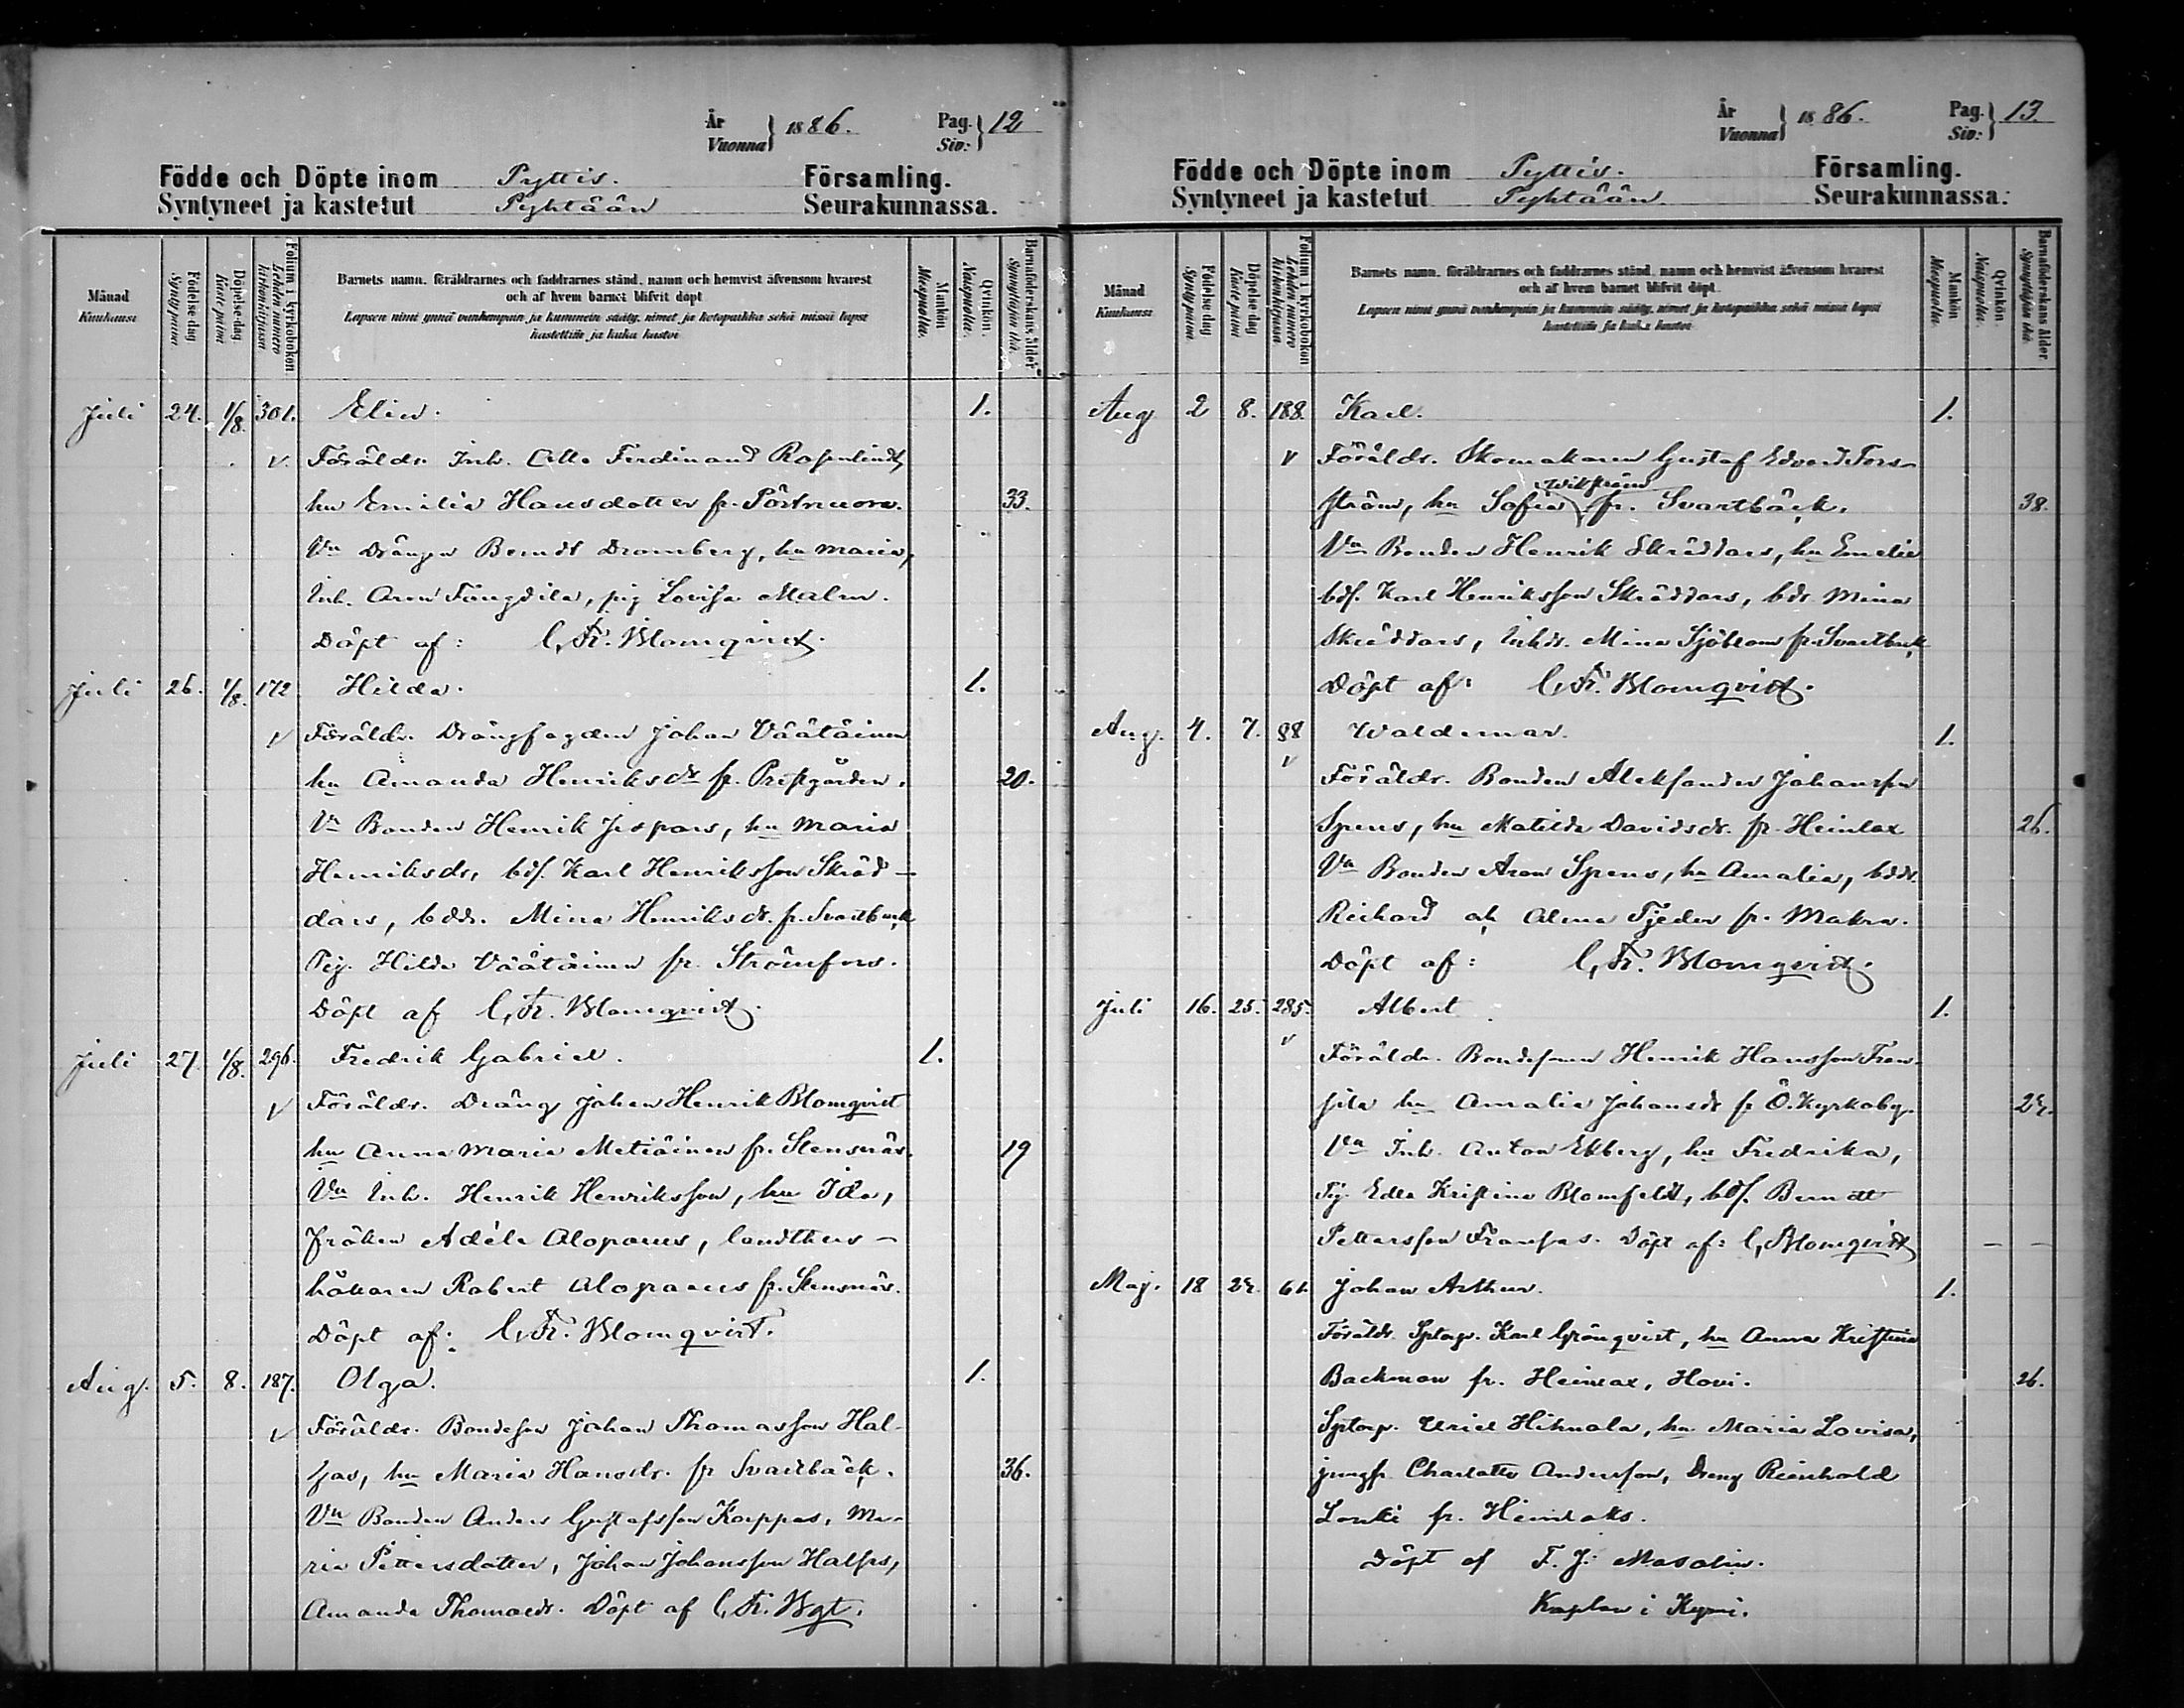 År
Vuonna } 1886.
Pag.
Siv: } 12
Födde och Döpte inom Pyttis. Församling.
Syntyneet ja kastetut Pyhtään Seurakunnassa.
Månad
Kuukausi
Födelse-dag
Syntypäivä
Döpelse-dag
Kaste päivä
Folium i kyrkobokon
Lehden numero kirkonkirjassa
Barnets namn, föräldrarnes och faddrarnes stånd, namn och hemvist äfvensom hvarest
och af hvem barnet blifvit döpt
Lapsen nimi ynnä vanhempain ja kummein sääty, nimet ja kotopaikka sekä missä lapsi
kastettiin ja kuka kastoi
Mankön
Miespuolia.
Qvinkön.
Naispuolia.
Barnaföderskans ålder
Synnyttäjän ikä.
Juli 24. 1/8. 301. Elin. 1.
v. Föräldr. Inh. Otto Ferdinand Rosenlindt,
hu Emilia Hansdotter fr. Pörtnuora. 33.
Vn Drängen Berndt Dromberg, hu Maria,
Inh. Aron Tüngdila, pig Lovisa Malm.
Döpt af: C. Fr. Blomqvist.
Juli 26. 1/8. 172 Hilda. 1.
v Föräldr. Drängfogden Johan Väätäinen
hu Amanda Henriksdr fr. Prestgården. 20.
Vn Bonden Henrik Jespars, hu Maria
Henriksdr, bdf. Karl Henriksson Skräd-
dars, bddr. Mina Henriksdr. fr. Svartbäck
Pig. Hilda Väätäinen fr. Strömfors.
Döpt af C. Fr. Blomqvist.
Juli 27. 1/8. 296. Fredrik Gabriel. 1.
v Föräldr. Dräng Johan Henrik Blomqvist
hu Anna Maria Metiäinen fr. Stensnäs. 19
Vn Inh. Henrik Henriksson, hu Ida,
fröken Adéle Alopæus, landthus-
hållaren Robert Alopæus fr. Stensnäs.
Döpt af: C. Fr. Blomqvist.
Aug. 5. 8. 187. Olga. 1.
v Föräldr. Bondeson Johan Thomasson Hal-
jas, hu Maria Hansdr. fr Svartbäck. 36.
Vn Bonden Anders Gustafsson Koppas, Ma-
ria Pettersdotter, Johan Johansson Halfrs,
Amanda Thomasdr. Döpt af C. Fr. Bqt.
År
Vuonna } 1886.
Pag.
Siv: } 13.
Födde och Döpte inom Pyttis. Församling.
Syntyneet ja kastetut Pyhtään Seurakunnassa:
Månad
Kuukausi
Födelse-dag
Syntypäivä
Döpelse-dag
Kaste päivä
Folium i kyrkobokon
Lehden numero kirkonkirjassa
Barnets namn, föräldrarnes och faddrarnes stånd, namn och hemvist äfvensom hvarest
och af hvem barnet blifvit döpt.
Lapsen nimi ynnä vanhempain ja kummein sääty, nimet ja kotopaikka sekä missä lapsi
kastettiin ja kuka kastoi
Mankön
Miespuolia.
Qvinkön.
Naispuolia.
Barnaföderskans ålder
Synnyttäjän ikä.
Aug 2 8. 188. Karl. 1.
v Föräldr. Skomakaren Gustaf Edvard Fors-
Wikström
ström, hu Sofia fr. Svartbäck. 38.
Vn Bonden Henrik Skräddars, hu Emelie
bdf. Karl Henriksson Skräddars, bdr Mina
Skräddars, Inhdr. Mina Sjöblom fr. Svartbäck
Döpt af: C. Fr. Blomqvist.
Aug. 4. 7. 98 Waldemar. 1.
v Föräldr. Bonden Aleksander Johansson
Spens, hu Matilda Davidsdr. fr. Heinlax 26.
Vn Bonden Aron Spens, hu Amalia, bddr.
Richard och Alma Tjeder fr. Makra.
Döpt af: C. Fr. Blomqvist.
Juli 16. 25. 285. Albert 1.
v Föräldr. Bondesonen Henrik Hansson Frans-
sila hu Amalia Johansdr fr Ö. Kyrkoby. 22.
Vn Inh. Anton Ekberg, hu Fredrika,
Pig. Edla Kristina Blomfeldt, bdf. Berndt
Pettersson Fransas. Döpt af: C. Blomqvist
Maj. 18 22. 61. Johan Arthur. 1.
Föräldr. Sptorp. Karl Grönqvist, hu Anna Kristina
Backman fr. Heinlax, Hovi. 26.
Sptorp. Uriel Hihnala, hu Maria Lovisa,
jungfr. Charlotta Andersson, Dreng Reinhold
Louki fr. Heinlaks.
Döpt af F. J. Masalin.
Kaplan i Kymi.